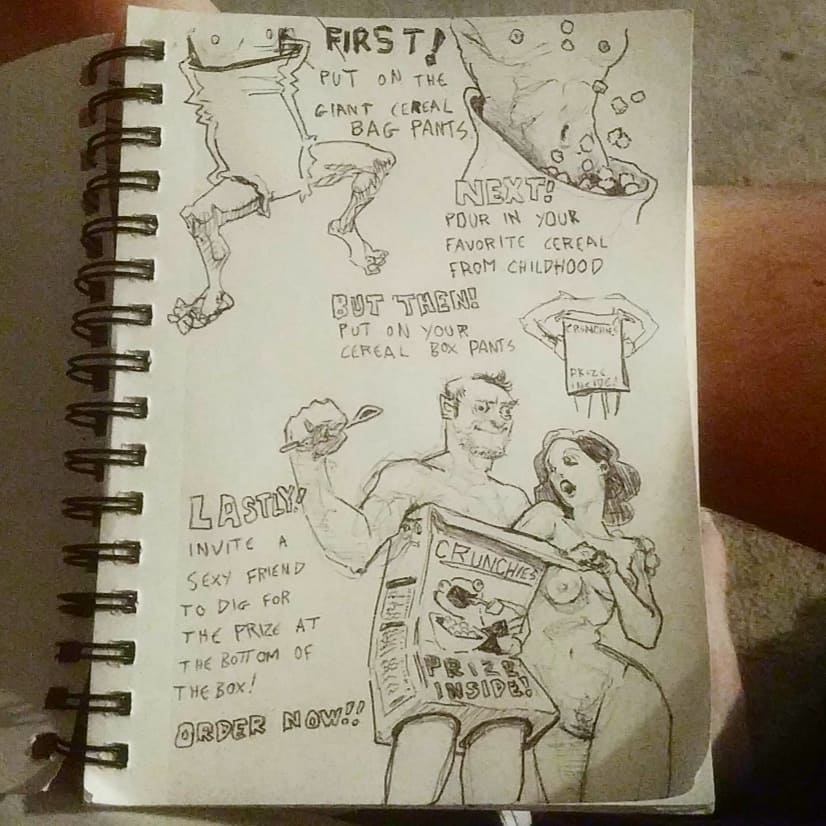 FIRST!
PUT ON THE
GIANT CEREAL
BAG PANTS.
NEXT!
POUR IN YOUR
FAVORITE CEREAL
FROM CHILDHOOD
BUT THEN!
PUT ON YOUR
CEREAL BOX PANTS
CRUNCHIES
PRIZE
INSIDE!
LASTLY!
INVITE A
SEXY FRIEND
TO DIG FOR
THE PRIZE AT
THE BOTTOM OF
THE BOX!
ORDER NOW!!
CRUNCHIES
PRIZE
INSIDE!